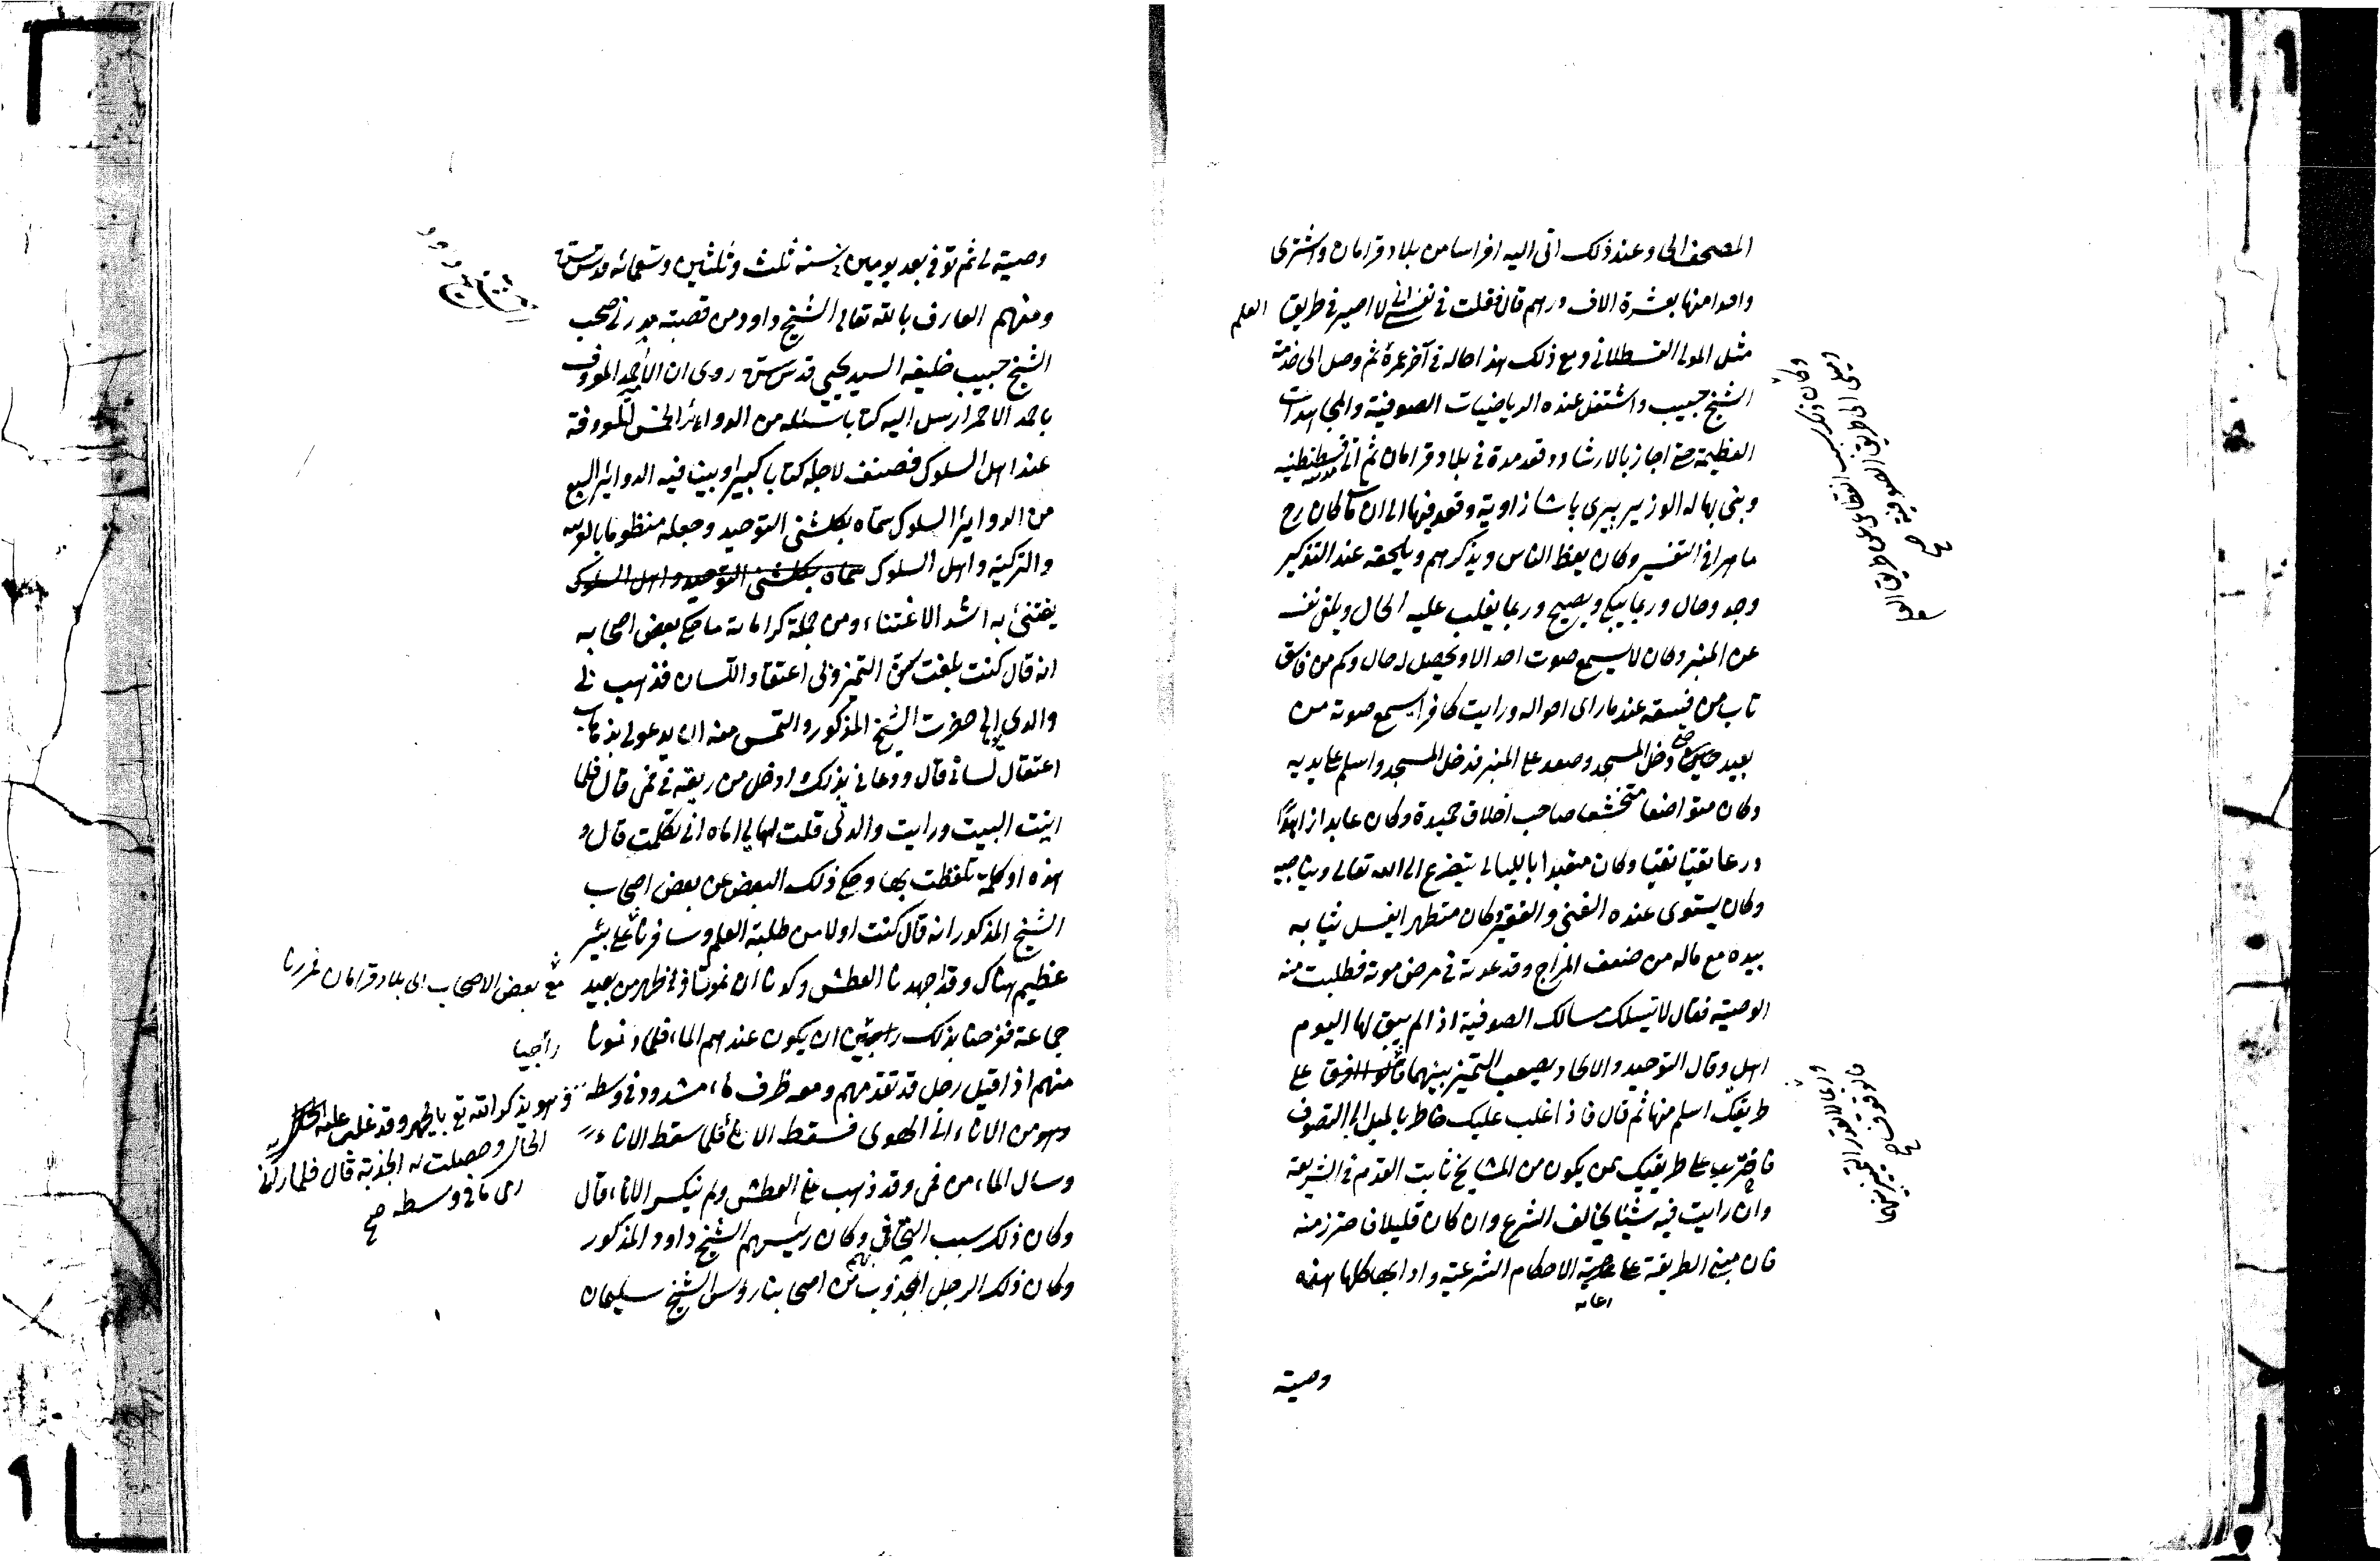 المصحف الى وعند ذلك اتى اليه افراسا من بلاد قرامان واشترى
واحدا منها بعشرة الاف درهم قال فقلت في نفسي اني لا اصير في طريق العلم
مثل المولى القسطلاني ومع ذلك هذا حاله في آخر عمره ثم وصل الى خدمة
الشيخ حبيب واشتغل عنده الرياضيات الصوفية والمجاهدات
العظيمة حتى اجاز بالارشاد وقعد مدة في بلاد قرامان ثم اتى قسطنطينيه
وبنى بها له الوزير بيرى باشا زاوية وقعد فيها الى ان مات كان رح
ماهرا في التفسير وكان يعظ الناس ويذكرهم ويلحقه عند التذكير
وجد وحال وربما يبكي ويصيح وربما يغلب عليه الحال ويلقى نفسه
عن المنبر وكان لا يسمع صوت احد الا ويحصل له حال وكم من فاسق
تاب من فسقه عند ما راى احواله ورايت كافرا يسمع صوته من
بعيد دخل المسجد وصعد على المنبر فدخل المسجد واسلم على يديه
وكان متواضعا متخشعا صاحب اخلاق حميدة وكان عابدا زاهدا
ورعا تقيا نقيا وكان متعبدا بالليالى يتضرع الى الله تعالى ويناجيه
وكان يستوى عنده الغنى والفقير وكان متطهرا يغسل ثيابه
بيده مع ماله من ضعف المزاج وقد عدته في مرض موته فطلبت منه
الوصية فقال لا تسلك مسالك الصوفية اذ لم يبق لها اليوم
اهل وقال التوحيد والالحاد يصعب التميز بينهما على
طريقك اسلم منها ثم قال فاذا غلب عليك خاطر بالميل الى التصوف
فاختر على طريقك من يكون من المشايخ ثابت القدم في الشريعة
وان رايت فيه شيئا يخالف الشرع وان كان قليلا فاحترز منه
فان مبنى الطريقة على رعاية الاحكام الشرعية وادابها كلها هذه
وصية
وكان ذكر سبب انتقالي من طريق العلم
وميلي الى طريق الصوفية صح
وربما لا يقدر التميز بينهما
صح
وصيته لى ثم توفي بعد يومين في سنة ثلث وثلثين وتسعمائه قدس سره
ومنهم العارف بالله تعالى الشيخ داود من قصبة مدرنى صحب
الشيخ حبيب خليفة السيد يحيى قدس سره روى ان الامير احمد المعروف
باحمد الاحمر ارسل اليه كتابا سئله من الدوائر الخمس المعروفة
عند اهل السلوك فصنف لاجله كتابا كبيرا وبين فيه الدوائر السبع
من الدوائر السلوك سماه بكلشن التوحيد وجعله منظوما بالفارسية
والتركية واهل السلوك سماه بكلشن التوحيد واهل السلوك
يعتنى به اشد الاعتناء ومن جملة كراماته ما حكى بعض اصحابه
انه قال كنت بلغت سن التميز ولى اعتقال اللسان فذهب بى
والدى الى حضرت الشيخ المذكور والتمس منه ان يدعو لى بذهاب
اعتقال لسانى قال ودعا لى بذلك وادخل من ريقه في فمى قال فلما
اتيت البيت ورايت والدتى قلت لها يا اماه انى تكلمت قال و
هذه اول كلمة تلفظت بها وحكى ذلك البعض عن بعض اصحاب
الشيخ المذكور انه قال كنت اولا من طلبة العلم وسافرنا على بئر
مع بعض الاصحاب الى بلاد قرامان فمررنا
عظيم هناك وقد اجهدنا العطش وكدنا ان نموت فظهر من بعيد
جماعة ففرحنا بذلك راجين ان يكون عندهم الماء فلما دنونا
منهم اذ اقبل رجل قد تقدمهم ومعه ظرف ماء مشدود في وسطه
وهو يذكر الله تع بالجهر وقد غلب عليه
الحال وحصلت له الجذبة قال فلما رانا
رمى ما في وسطه صح
وهو من الاناء الى الهوى فسقط الاناء فلما سقط الاناء
وسال الماء من فمى وقد ذهب عنى العطش ولم ينكسر الاناء قال
وكان ذلك سبب وكان رئيسهم الشيخ داود المذكور
وكان ذلك الرجل المجذوب من اصحابنا روس الشيخ سليمان